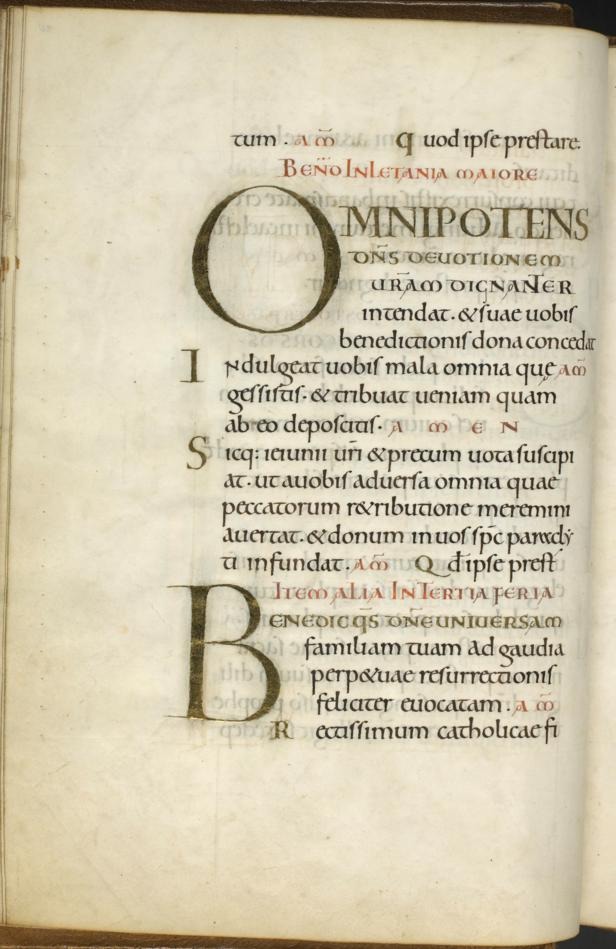 tum . a m̄ q uod ipse prestare.
BEÑO IN LETANIA MAIORE
OMNIPOTENS
DÑS DEUOTIONEM
UR̄AM DIGNANT̄ER
intendat . & suae uobis
benedictionis dona concedat
Indulgeat uobis mala omnia quę am̄
gessistis . & tribuat ueniam quam
ab eo deposcitis . A M E N
Sicq: ieiunii ur̄i & precum uota suscipi
at . ut a uobis aduersa omnia quae
peccatorum r&ributione meremini
auertat . & donum in uos sp̄c
ti infundat . am̄ Q d̄ ipse prest̄
ITEM ALIA IN TERTIA FERIA
BENEDIC Q̄S DÑE UNIUERSAM
familiam tuam ad gaudia
perp&uae resurrectionis
feliciter euocatam . a m̄
R ectissimum catholicae fi